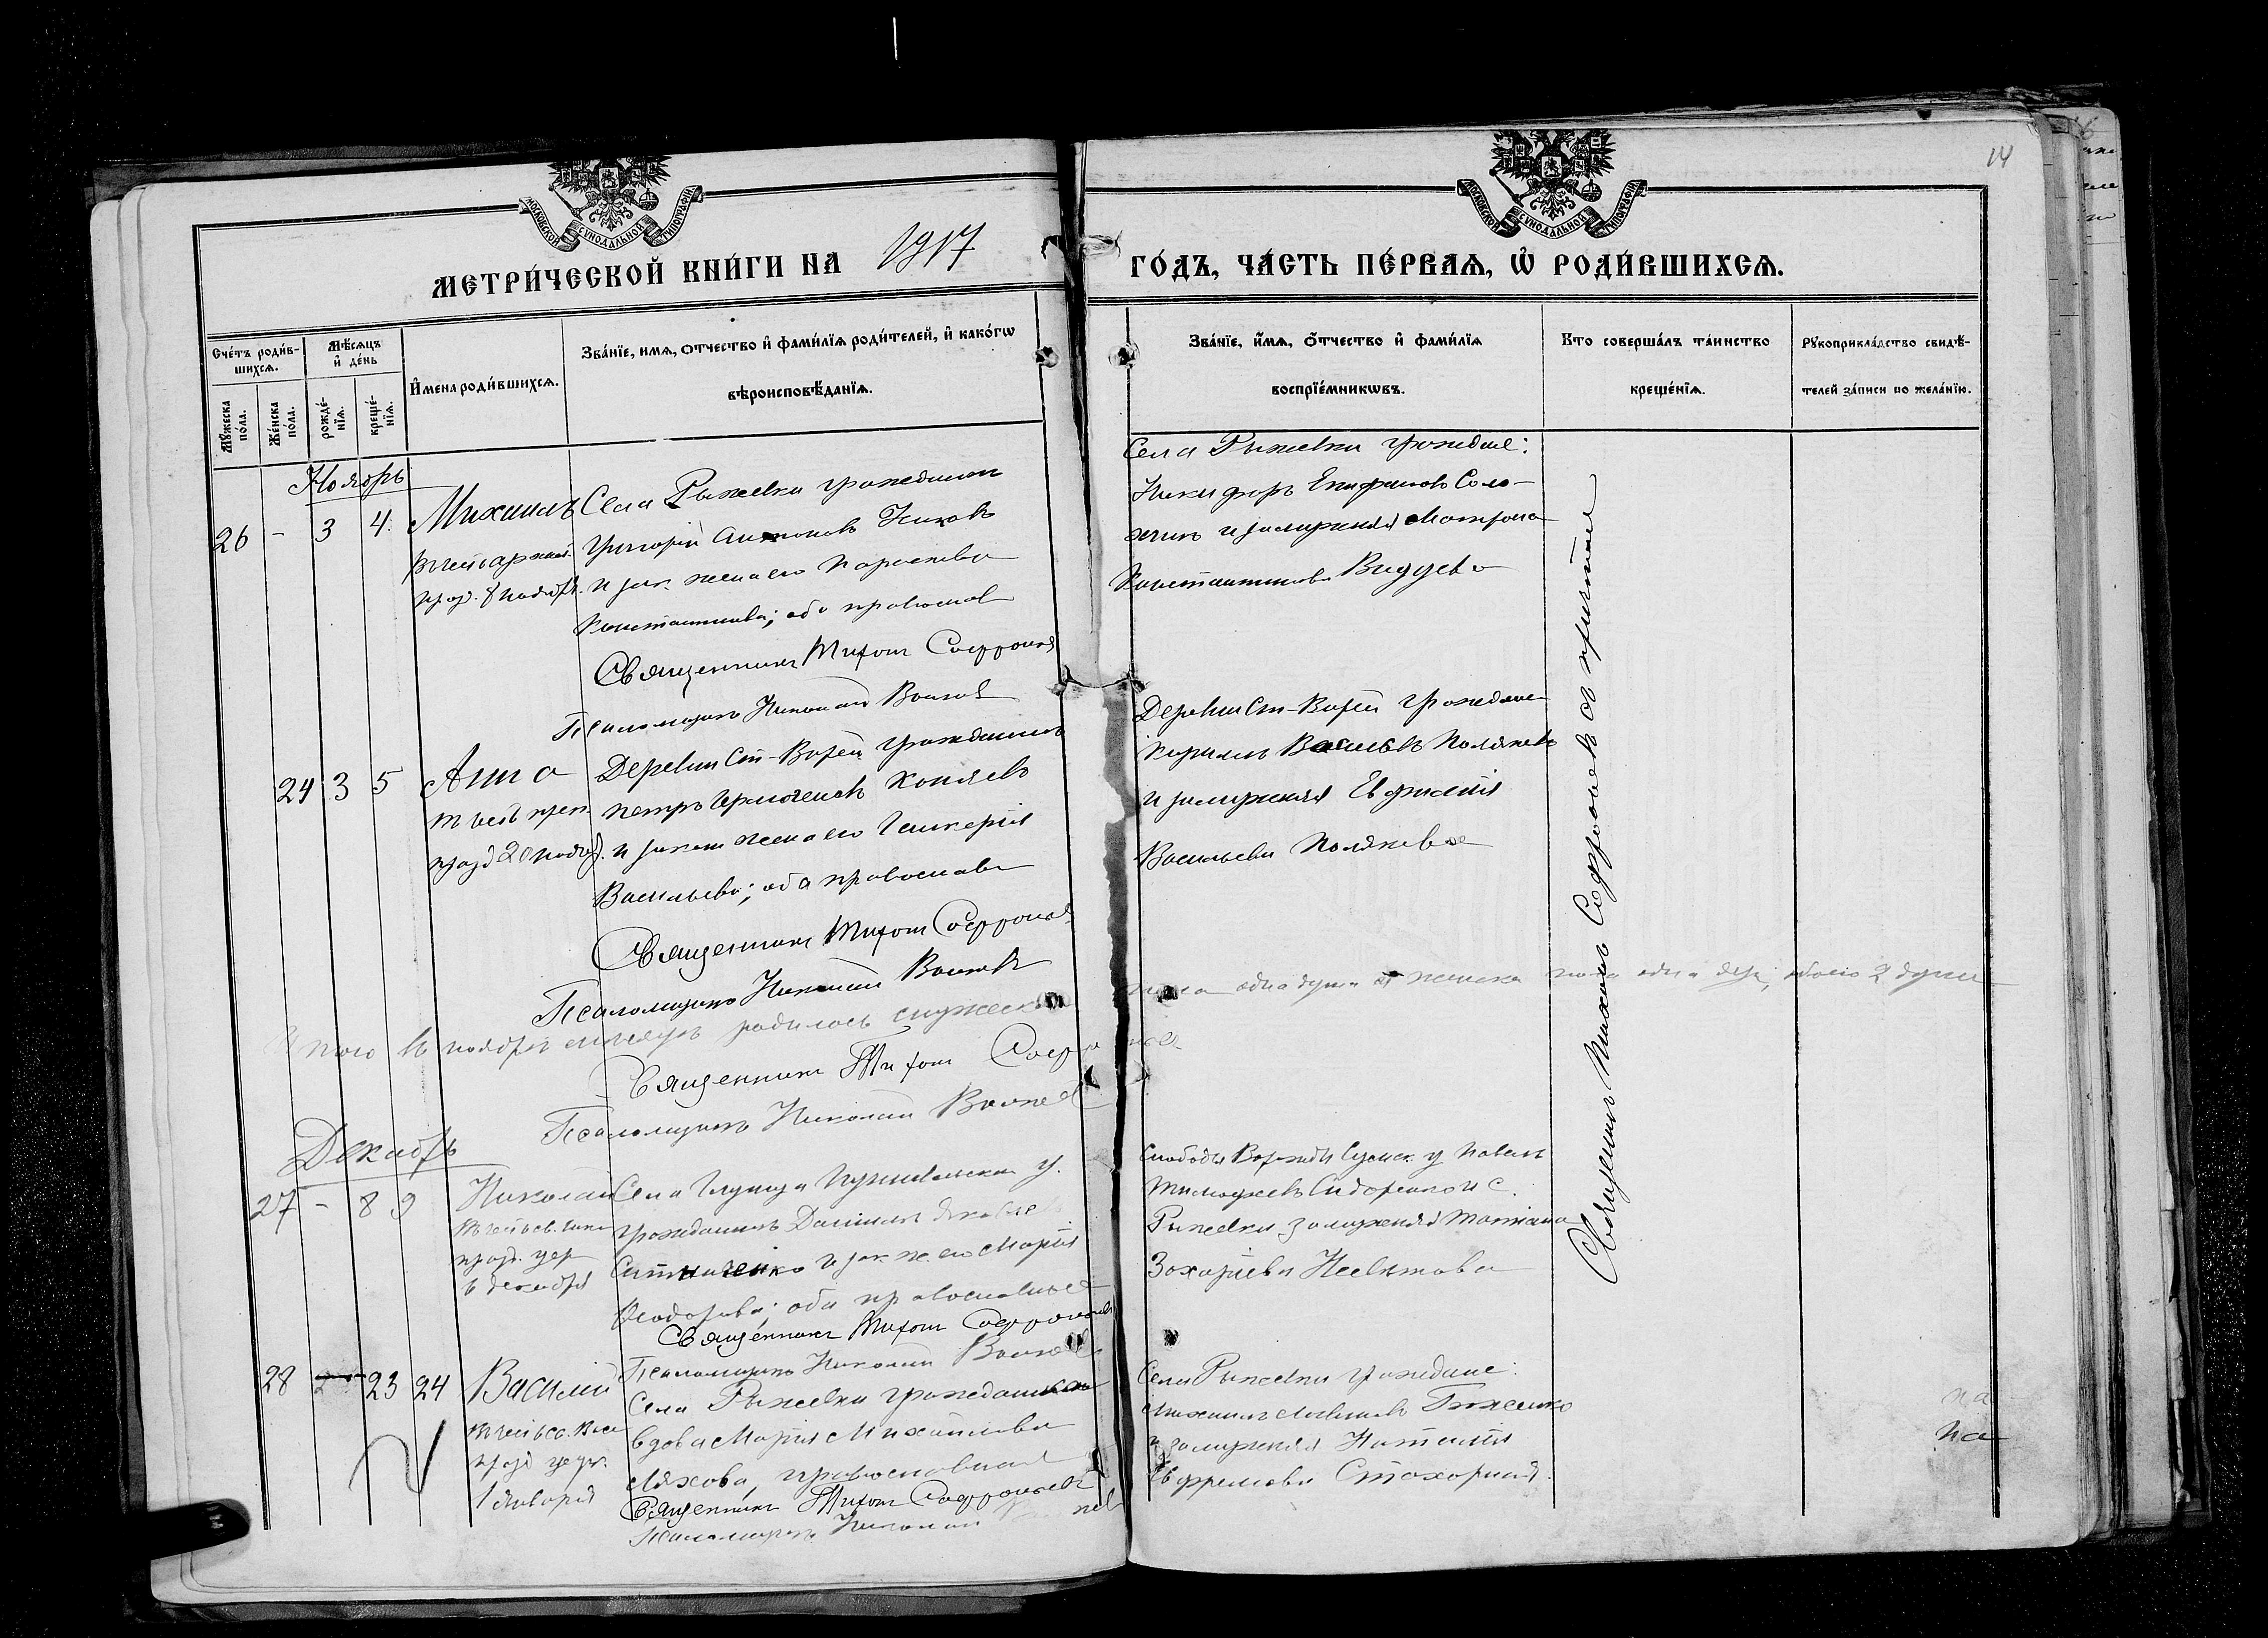 14
МОСКОВСКОЙ СѴНОДАЛЬНОЙ ТИПОГРАФІИ
МОСКОВСКОЙ СѴНОДАЛЬНОЙ ТИПОГРАФІИ
МЕТРИ́ЧЕСКОЙ КНИ́ГИ НА 1917 ГО́ДЪ, ЧА́СТЬ ПЕ́РВАѦ, Ѡ҆ РОДИ́ВШИХСѦ.
Сче́тъ роди́в-
шихсѧ.
Мꙋ́жеска по́ла.
Же́нска по́ла.
Мѣ́сѧцъ и҆ де́нь
рожде́-
нїѧ.
креще́-
нїѧ.
И҆мена роди́вшихсѧ.
Зва́нїе, имѧ, ѻтчество и҆ фами́лїѧ роди́телей, и҆ како́гѡ
вѣроисповѣ́данїѧ.
Зва́нїе, и҆́мѧ, ѻ҆́тчество и҆ фами́лїѧ
воспрїе́мникѡвъ.
Кто соверша́лъ та́инство
креще́нїѧ.
Рꙋкоприкла́дство свидѣ́-
телей за́писи по жела́нїю.
Ноябрь
26 - 3 4.
Михаилъ
празд. 8 ноября.
Села Рыжевки гражданинъ
Григорій Антоновъ
и зак. жена его Параскева
Константинова; оба православ
Священникъ Тихонъ Софроновъ
Псаломщикъ Николай Волковъ
Села Рыжевки граждане:
Никифоръ Епифановъ Соло-
и замужняя Матрона
Константинова
24 3 5
Анна
празд 20 ноября.
Деревни Ст-Вирей гражданинъ
Петръ Коняевъ
и закон жена его Гликерія
Васильева; оба православ
Священникъ Тихонъ Софронов
Псаломщикъ Николай Волковъ
Деревни Ст-Вирей граждане
Кириллъ Васильевъ Поляковъ
и замужняя Евфимія
Васильева Полякова
Итого въ ноябрѣ мѣсяцѣ родилось мужеска пола одна душа и женска пола одна душ, обоего 2 души
Священникъ Тихонъ Софронов
Псаломщикъ Николай Волковъ
Декабрь
27 - 8 9
Николай
празд. цер
6 декабря
Села Глушца Путивльскаго у.
гражданинъ Даніилъ Яковлев
и зак. ж. его Марія
Ѳеодорова; оба православные
Священникъ Тихонъ Софроновъ
Псаломщикъ Николай Волковъ
Слободы Ворожбы Сумск. у Павелъ
Тимофеевъ Сидоренко и с.
Рыжевки замужняя Татіана
Захаріева
28 23 24
Василій
празд церк.
1 января
Села Рыжевки гражданка
вдова Марія Михайлова
Ляхова, православная
Священникъ Тихонъ Софроновъ
Псаломщикъ Николай
Села Рыжевки граждане:
Михаилъ
и замужняя Наталія
Евфремова
Священникъ Тихонъ Софроновъ съ причтом
на
на